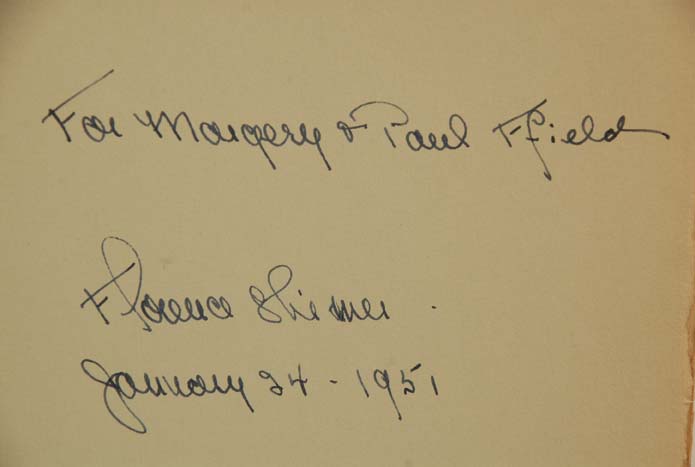 For Margery & Paul Ffield
Florence Shimer
January 24 - 1951